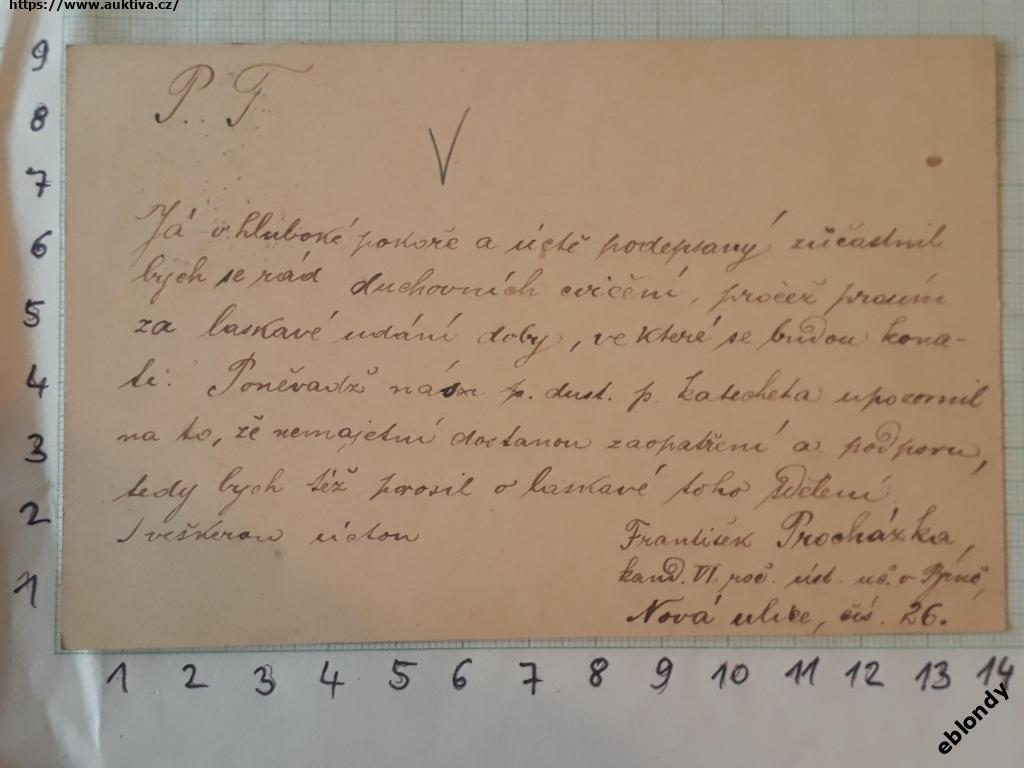 https://www.auktiva.cz/
P. T.
V
Já v hluboké pokoře a úctě podepsaný zůčastnil
bych se rád duchovních cvičení, pročež prosím
za laskavé udání doby, ve které se budou kona-
ti. Poněvadž nás p. dust. p. katecheta upozornil
na to, že nemajetní dostanou zaopatření a podporu,
tedy bych též prosil o laskavé toho sdělení
S veškerou úctou
František Procházka,
kand. VI. roč. úst. uč. v Brně,
Nová ulice, čís. 26.
9
8
7
6
5
4
3
2
1
1 2 3 4 5 6 7 8 9 10 11 12 13 14
eblondy